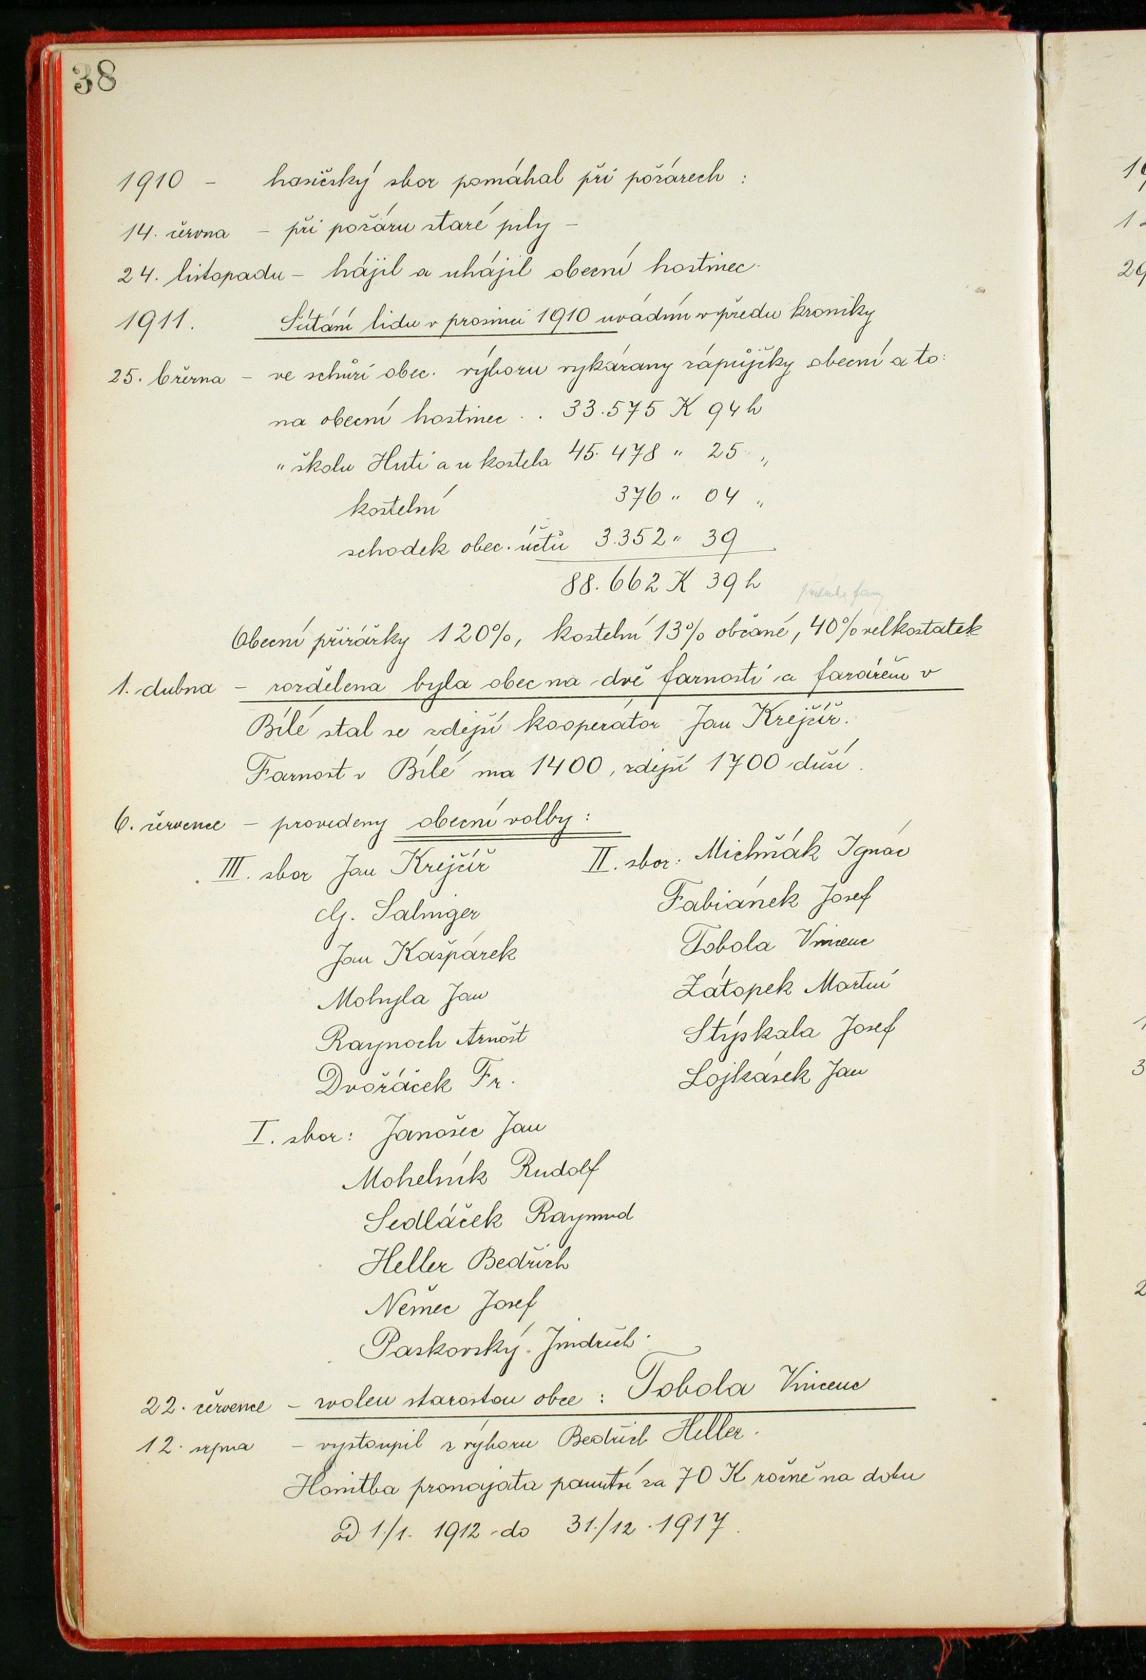 38
1910 - hasičský sbor pomáhal při požárech :
14. června - při požáru staré pily -
24. listopadu - hájil a uhájil obecní hostinec.
1911. Sčítání lidu v prosinci 1910 uvádím v předu kroniky
25. března - ve schůzi obec. výboru vykázany zápůjčky obecní a to:
na obecní hostinec . . 33.575 K 94 h
" školu Huti a u kostela 45.478 " 25 "
kostelní 376 " 04 "
schodek obec. účtů 3.352 " 39
88.662 K 39 h
Obecní přirážky 120%, kostelní 13% občané, 40% velkostatek
1. dubna - rozdělena byla obec na dvě farnosti a farářem v
Bílé stal se zdejší kooperátor Jan Krejčíř.
Farnost v Bílé ma 1400, zdejší 1700 duší.
6. července - provedeny obecní volby :
III. sbor Jan Krejčíř II. sbor: Michňák Ignác
Salniger Fabiánek Josef
Jan Kašpárek Tobola Vincenc
Mohyla Jan Zátopek Martin
Raynoch Arnošt Stýskala Josef
Dvořáček Fr. Lojkásek Jan
I. sbor: Janošec Jan
Mohelník Rudolf
Sedláček Raymund
Heller Bedřich
Němec Josef
Paskovský Jindřich
22. července - zvolen starostou obce : Tobola Vincenc
12. srpna - vystoupil z výboru Bedřich Heller.
Honitba pronajata panství za 70 K ročně na dobu
od 1./1. 1912 - do 31./12. 1917.